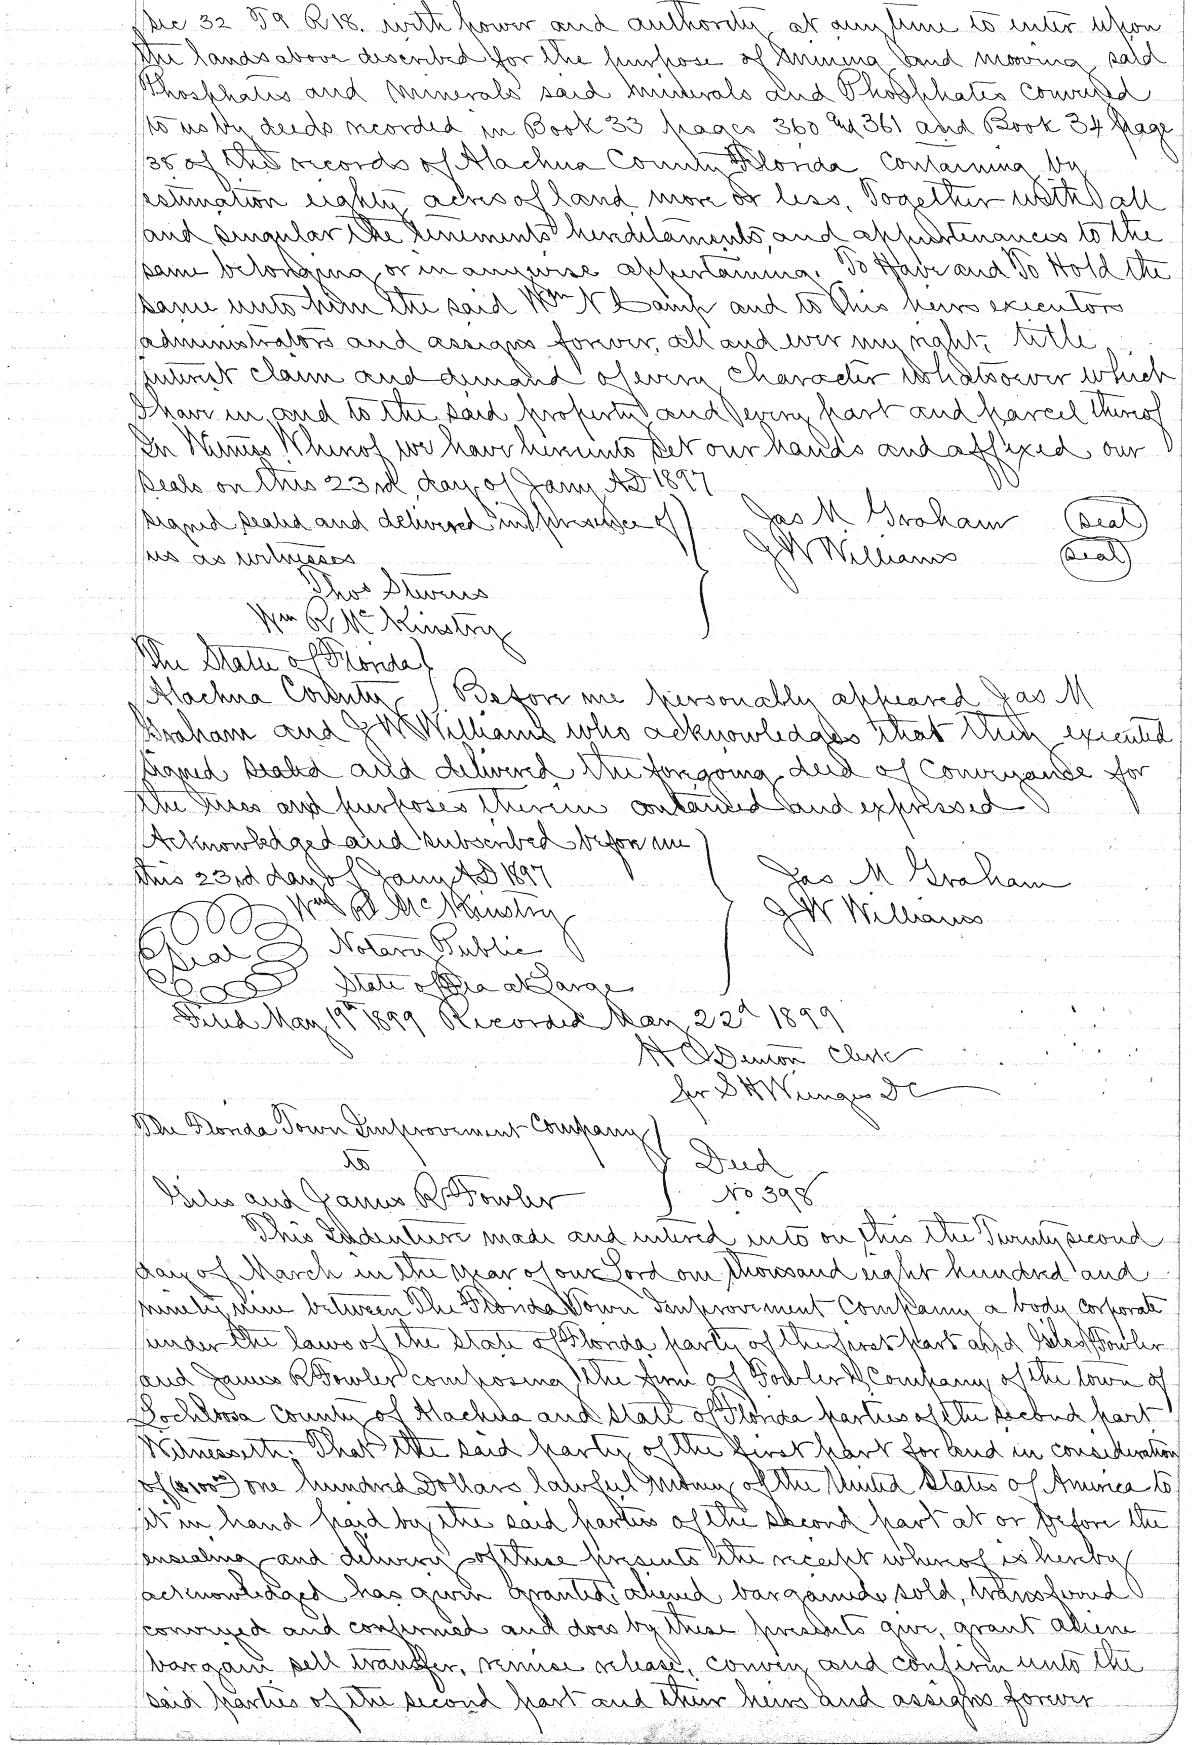 Sec 32 T9 R18. with power and authority at any time to enter upon
the lands above described for the purpose of mining and mooving said
Phosphates and minerals said minerals and Phosphates conveyed
to us by deeds recorded in Book 33 pages 360 and 361 and Book 34 page
38 of the records of Alachua County Florida containing by
estimation eighty acres of land more or less. Together with all
and singular the tenements hereditaments, and appurtenances to the
same belonging or in anywise appertaining. To Have and To Hold the
same unto him the said Wm N Camp and to his heirs executors
administrators and assigns forever, all and ever my right, title
interest claim and demand of every character whatsoever which
I have in and to the said property and every part and parcel thereof
In Witness Whereof we have hereunto set our hands and affixed our
seals on this 23rd day of Jany AD 1897
signed sealed and delivered in presence of } Jas M Graham (seal)
us as witnesses J W Williams (seal)
Thos Stevens
Wm R McKinstry
The State of Florida }
Alachua County } Before me personally appeared Jas M
Graham and J W Williams who acknowledges that they executed
signed sealed and delivered the foregoing deed of conveyance for
the uses and purposes therein contained and expressed
Acknowledged and subscribed before me
this 23rd day of Jany AD 1897 } Jas M Graham
Wm R McKinstry J W Williams
Seal Notary Public
State of Fla at Large
Filed May 19th 1899 Recorded May 22d 1899
H C Denton Clerk
for S H Wienges DC
The Florida Town Improvement Company }
to } Deed
Giles and James R Fowler } No 398
This Indenture made and entered into on this the Twenty second
day of March in the year of our Lord one thousand eight hundred and
ninety nine between The Florida Town Improvement Company a body corporate
under the laws of the State of Florida party of the first part and Giles Fowler
and James R Fowler composing the firm of Fowler & Company of the town of
Lochloosa County of Alachua and State of Florida parties of the second part
Witnesseth: That the said party of the first part for and in consideration
of ($100) one hundred Dollars lawful money of the United States of America to
it in hand paid by the said parties of the second part at or before the
ensealing and delivery of these presents the receipt whereof is hereby
acknowledged has given granted aliened bargained, sold, transferred
conveyed and confirmed and does by these presents give, grant aliene
bargain sell transfer, remise release, convey and confirm unto the
said parties of the second part and their heirs and assigns forever